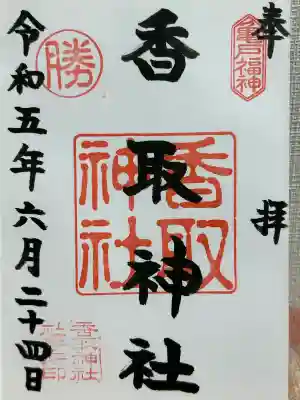 奉拝
亀戸福神
香取神社
香取神社
勝
令和五年六月二十四日
香取神社
社务之印